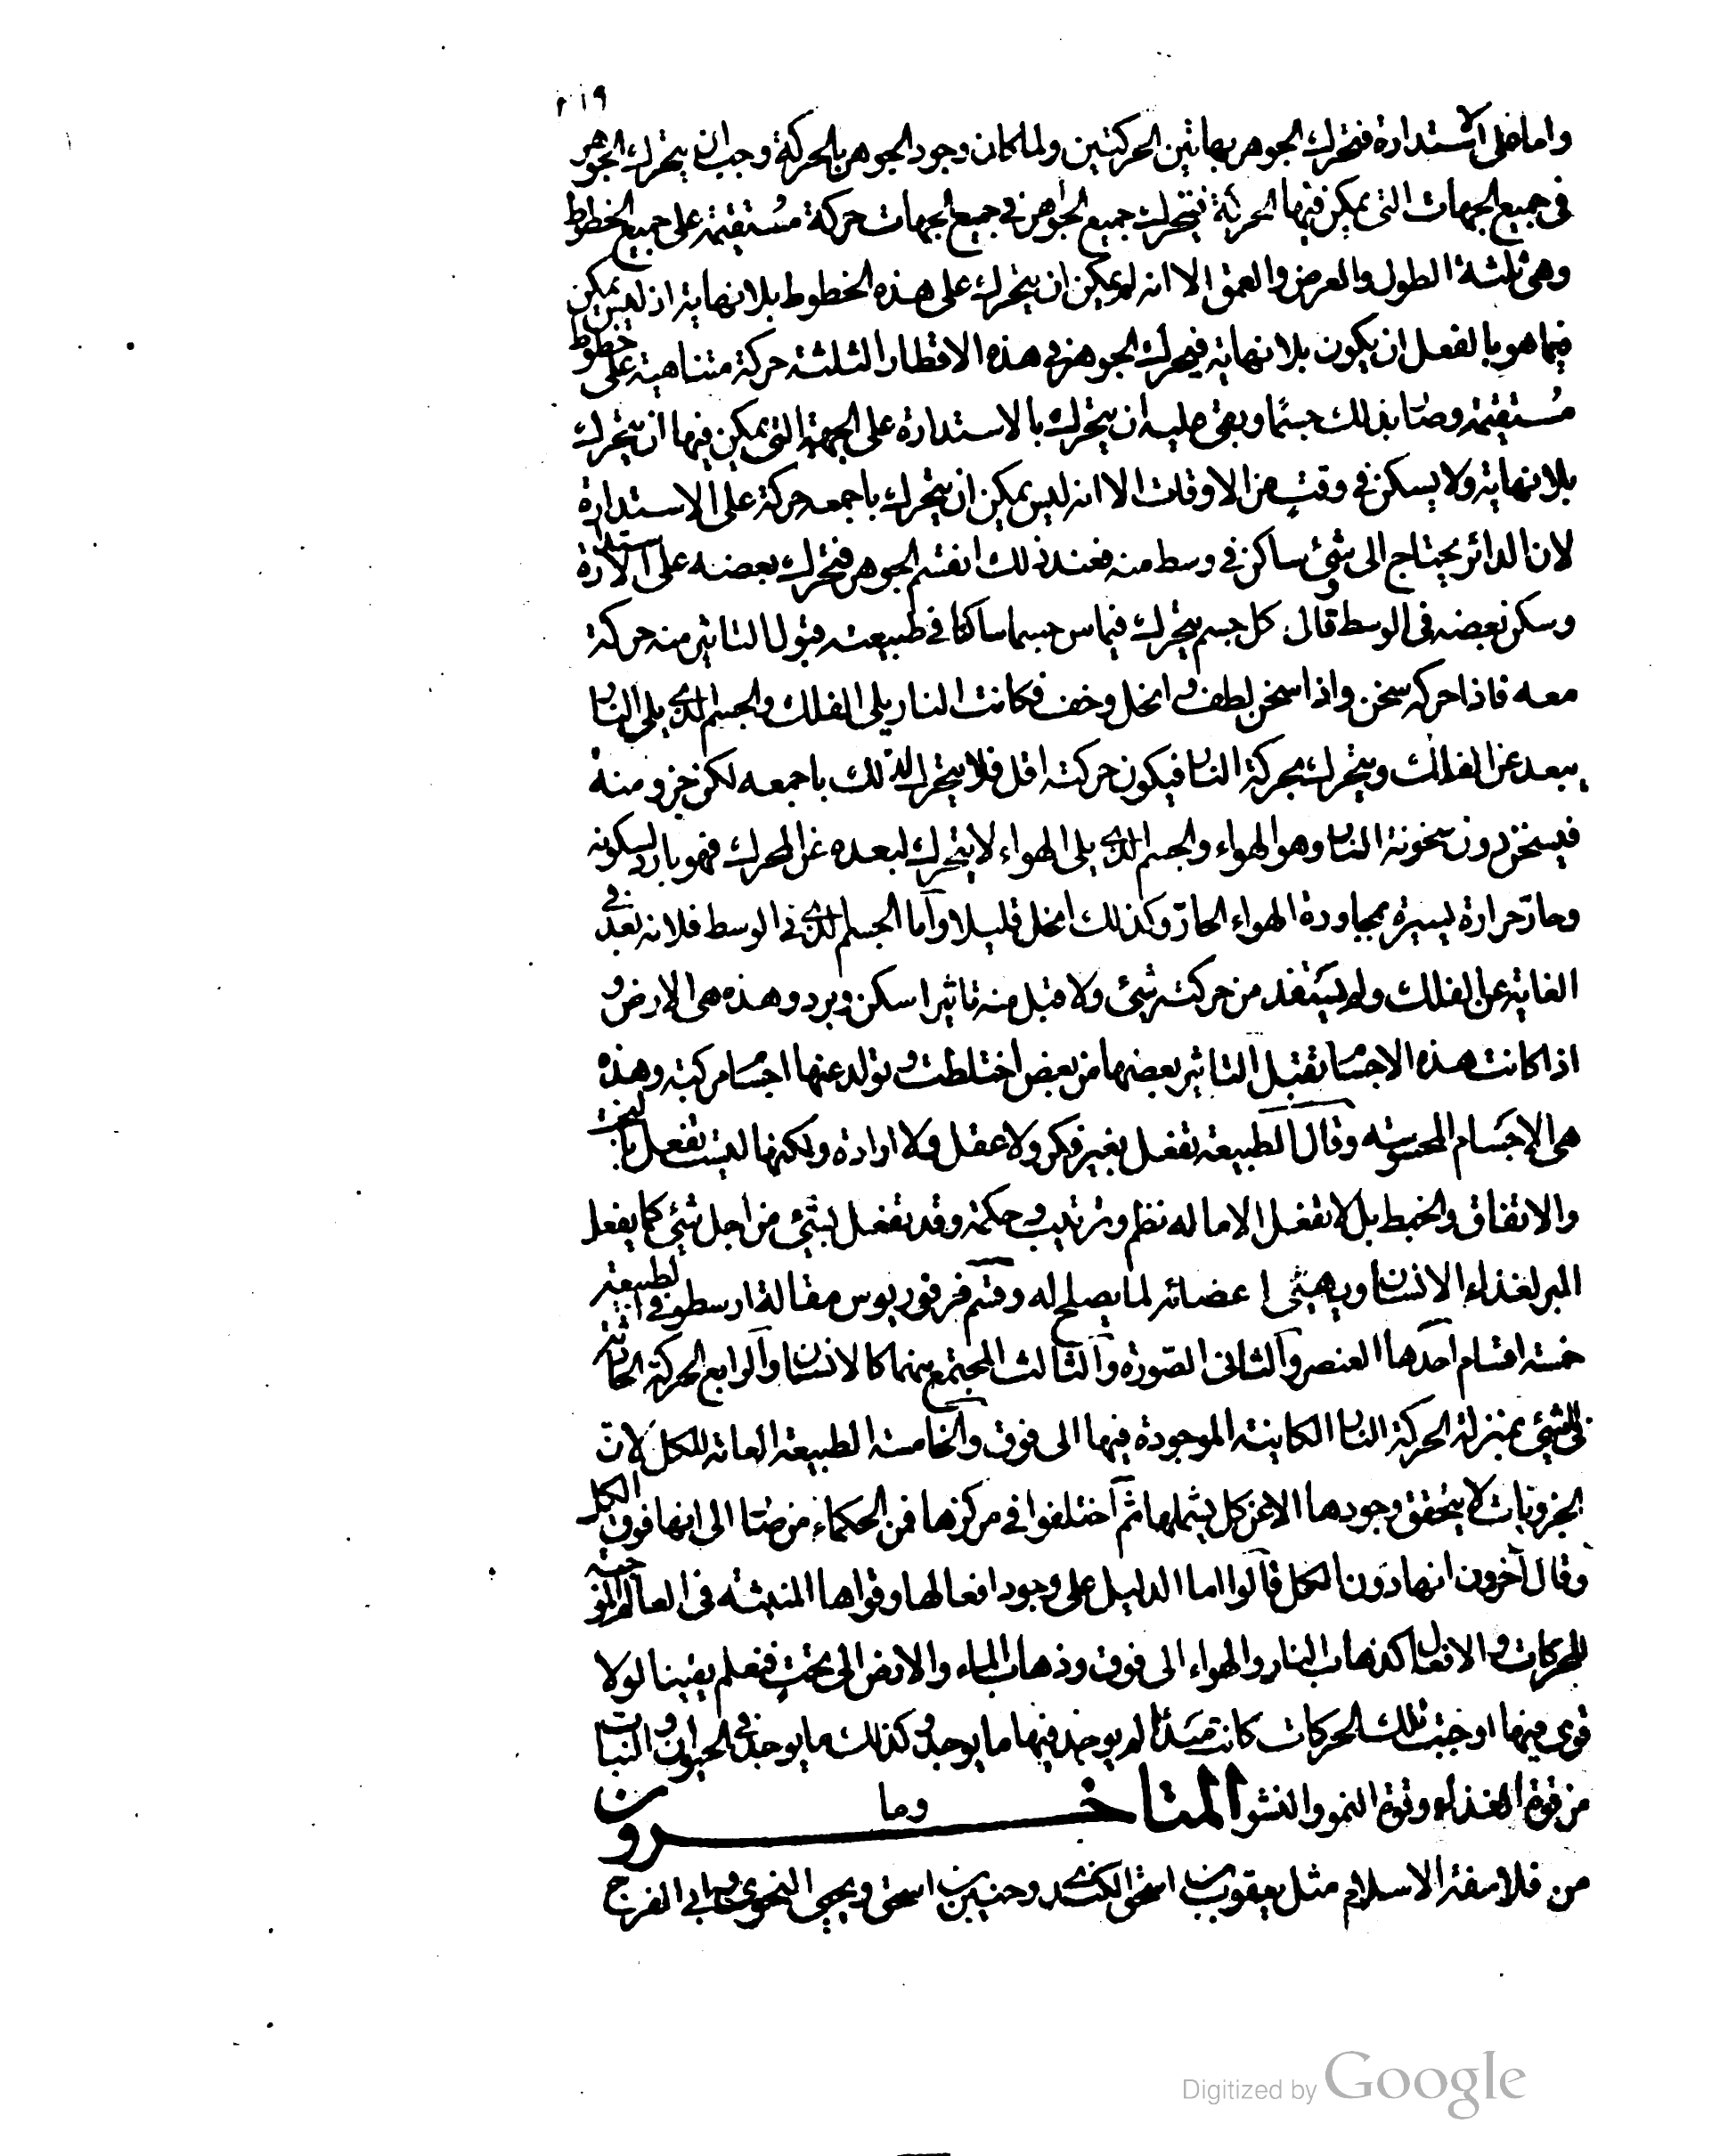 ٢١٩
واما على الاستدارة فتحرك الجوهر بهاتين الحركتين ولما كان وجود الجوهر بالحركة وجب ان يتحرك الجوهر
في جميع الجهات التي يمكن فيها الحركة فيتحرك جميع الجواهر في جميع الجهات حركة مستقيمة على جميع الخطوط
وهي ثلثة الطول والعرض والعمق الا انه لم يمكن ان يتحرك على هذه الخطوط بلا نهاية اذ ليس يمكن
فيما هو بالفعل ان يكون بلا نهاية فيحرك الجوهر في هذه الاقطار الثلثة حركة متناهية على خطوط
مستقيمة وصار بذلك جسما وبقى عليه ان يتحرك بالاستدارة على الجهة التي يمكن فيها ان يتحرك
بلا نهاية ولا يسكن في وقت من الاوقات الا انه ليس يمكن ان يتحرك باجمعه حركة على الاستدارة
لان الدائر يحتاج الى شئ ساكن في وسط منه فعند ذلك انقسم الجوهر فتحرك بعضه على الاستدارة
وسكن بعضه في الوسط وقال كل جسم يتحرك فيماس جسما ساكنا في طبيعته قبول التاثير منه حركة
معه فاذا حركه سخن واذا سخن لطف وانحل وخف فكانت النار يلى الفلك والجسم الذي يلى النار
يبعد عن الفلك ويتحرك بحركة النار فيكون حركته اقل فلا يتحرك لذلك باجمعه لكن جزو منه
فيسخن دون سخونة النار وهو الهواء والجسم الذي يلى الهواء لا يتحرك لبعده عن المحرك فهو بارد لسكونه
وحار حرارة يسيرة بمجاورة الهواء الحار وكذلك انحل قليلا واما الجسم الذي في الوسط فلانه بعد في
الغاية عن الفلك ولم يستفد من حركته شئ ولا قبل منه تاثيرا سكن وبرد وهذه هي الارض و
اذا كانت هذه الاجسام تقبل التاثير بعضها من بعض اختلطت وتولد عنها اجسام مركبة وهذه
هي الاجسام المحسوسة وقال الطبيعة تفعل بغير فكر ولا عقل ولا ارادة ولكنها ليست تفعل بالبخت
والاتفاق والخبط بل لا تفعل الا ما له نظم وترتيب وحكمة وقد تفعل لشئ من اجل شئ كما يفعل
البر لغذاء الانسان ويهيئ اعضائه لما يصلح له وقسم فرفوريوس مقالة ارسطو في الطبيعة
خمسة اقسام احدها العنصر والثاني الصورة والثالث المجتمع منهما كالانسان والرابع الحركة الحادثة
في الشئ بمنزلة الحركة النار الكاينة الموجودة فيها الى فوق والخامسة الطبيعة العامة للكل لان
الجزويات لا يتحقق وجودها الا عن كل يشملها ثم اختلفوا في مركزها فمن الحكماء من صار الى انها فوق الكل
وقال آخرون انها دون الكل قالوا اما الدليل على وجود افعالها وقواها المنبثة في العالم الموجبة
للحركات والافعال كذهاب النار والهواء الى فوق وذهاب الماء والارض الى تحت فنعلم يقينا لولا
قوى فيها اوجبت تلك الحركات كانت مبدئا لم يوجد فيها ما يوجد وكذلك ما يوجد في الحيوان والنبات
من قوة الغذاء وقوة النمو والنشو المتاخرون وما
من فلاسفة الاسلام مثل يعقوب بن اسحق الكندي وحنين بن اسحق ويحيى النحوي وابي الفرج
Digitized by Google